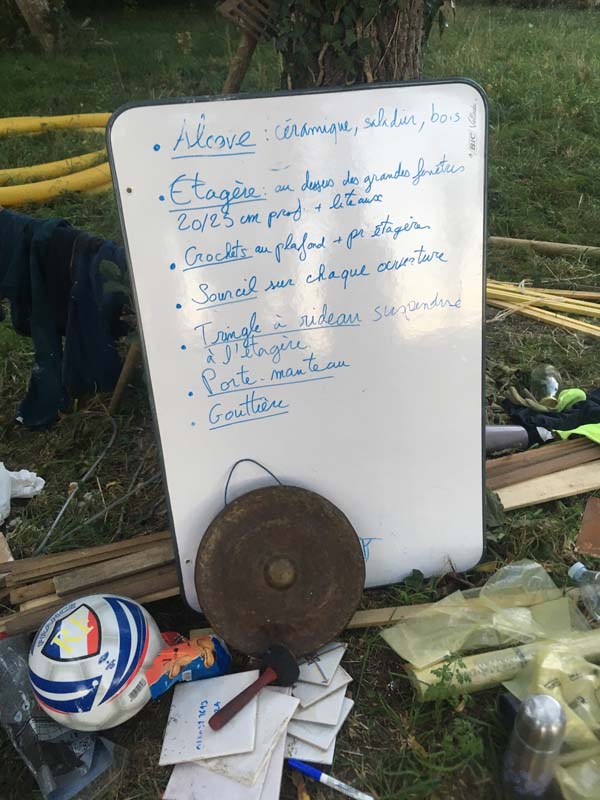 • Alcove : céramique, saladier, bois
• Etagère : au dessus des grandes fenêtres
20/25 cm prof + liteaux
• Crochets au plafond + pr étagères
• Sourcil sur chaque ouverture
• Tringle à rideau suspendre
à l'étagère
• Porte-manteau
• Gouttière
BIC